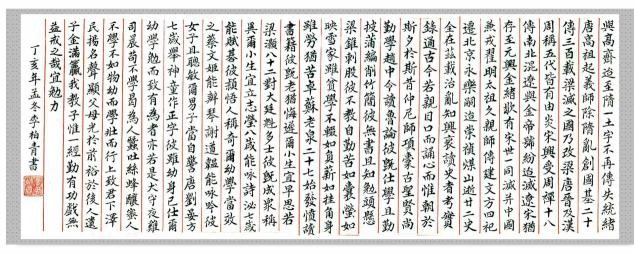 興高齊迨至隋一土宇不再傳失統緒
唐高祖起義師除隋亂創國基二十
傳三百載梁滅之國乃改梁唐晉及漢
周稱五代皆有由炎宋興受周禪十八
傳南北混遼與金帝號紛迨滅遼宋猶
存至元興金緒歇有宋世一同滅并中國
兼戎翟明太祖久親師傳建文方四祀
遷北京永樂嗣迨崇禎煤山逝廿二史
全在茲載治亂知興衰讀史者考實
錄通古今若親目口而誦心而惟朝於
斯夕於斯昔仲尼師項橐古聖賢尚
勤學趙中令讀魯論彼既仕學且勤
披蒲編削竹簡彼無書且知勉頭懸
梁錐刺股彼不教自勤苦如囊螢如
映雪家雖貧學不輟如負薪如掛角身
雖勞猶苦卓蘇老泉二十七始發憤讀
書籍彼既老猶悔遲爾小生宜早思若
梁灝八十二對大廷魁多士彼既成眾稱
異爾小生宜立志瑩八歲能詠詩泌七歲
能賦碁彼穎悟人稱奇爾幼學當效
之蔡文姬能辨琴謝道韞能咏吟彼
女子且聰敏爾男子當自警唐劉晏方
七歲舉神童作正字彼雖幼身己仕爾
幼學勉而致有為者亦若是犬守夜雞
司晨苟不學曷為人蠶吐絲蜂釀蜜人
不學不如物幼而學壯而行上致君下澤
民揚名聲顯父母光於前裕於後人遺
子金滿籯我教子惟一經勤有功戲無
益戒之哉宜勉力
丁亥年孟冬李柏青書